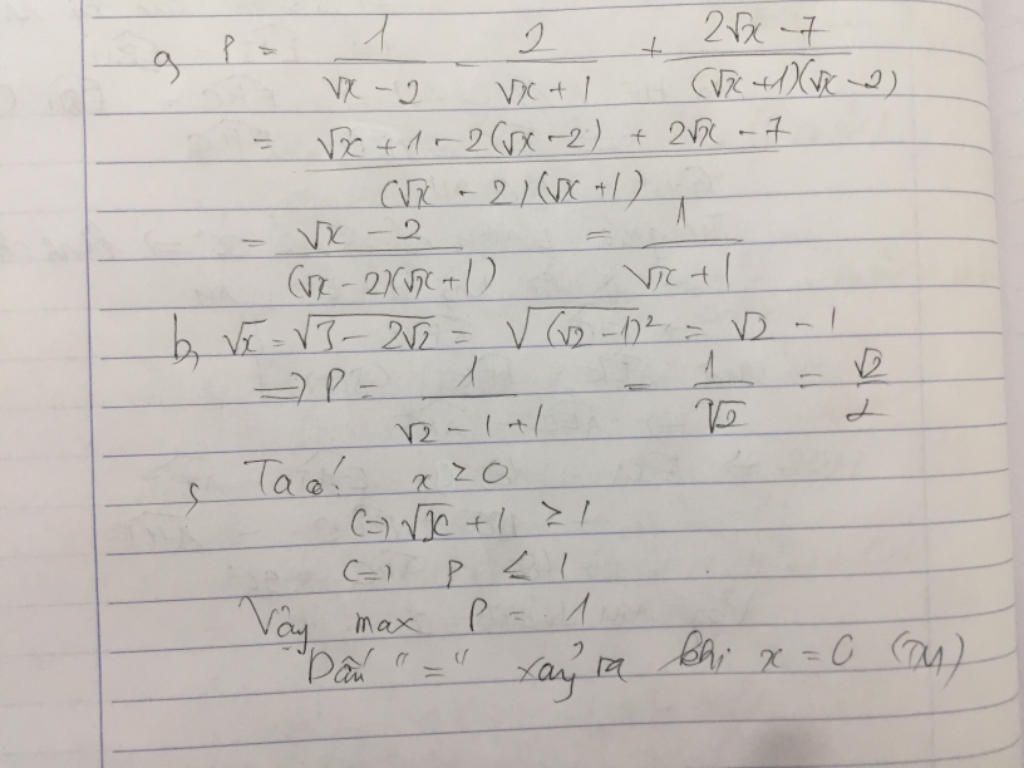 a, P = 1/(√x - 2) - 2/(√x + 1) + (2√x - 7)/((√x + 1)(√x - 2))
= (√x + 1 - 2(√x - 2) + 2√x - 7)/((√x - 2)(√x + 1))
= (√x - 2)/((√x - 2)(√x + 1)) = 1/(√x + 1)
b, √x = √(3 - 2√2) = √((√2 - 1)²) = √2 - 1
=> P = 1/(√2 - 1 + 1) = 1/√2 = √2/2
c, Ta có: x ≥ 0
<=> √x + 1 ≥ 1
<=> P ≤ 1
Vậy max P = 1
Dấu "=" xảy ra khi x = 0 (TM)